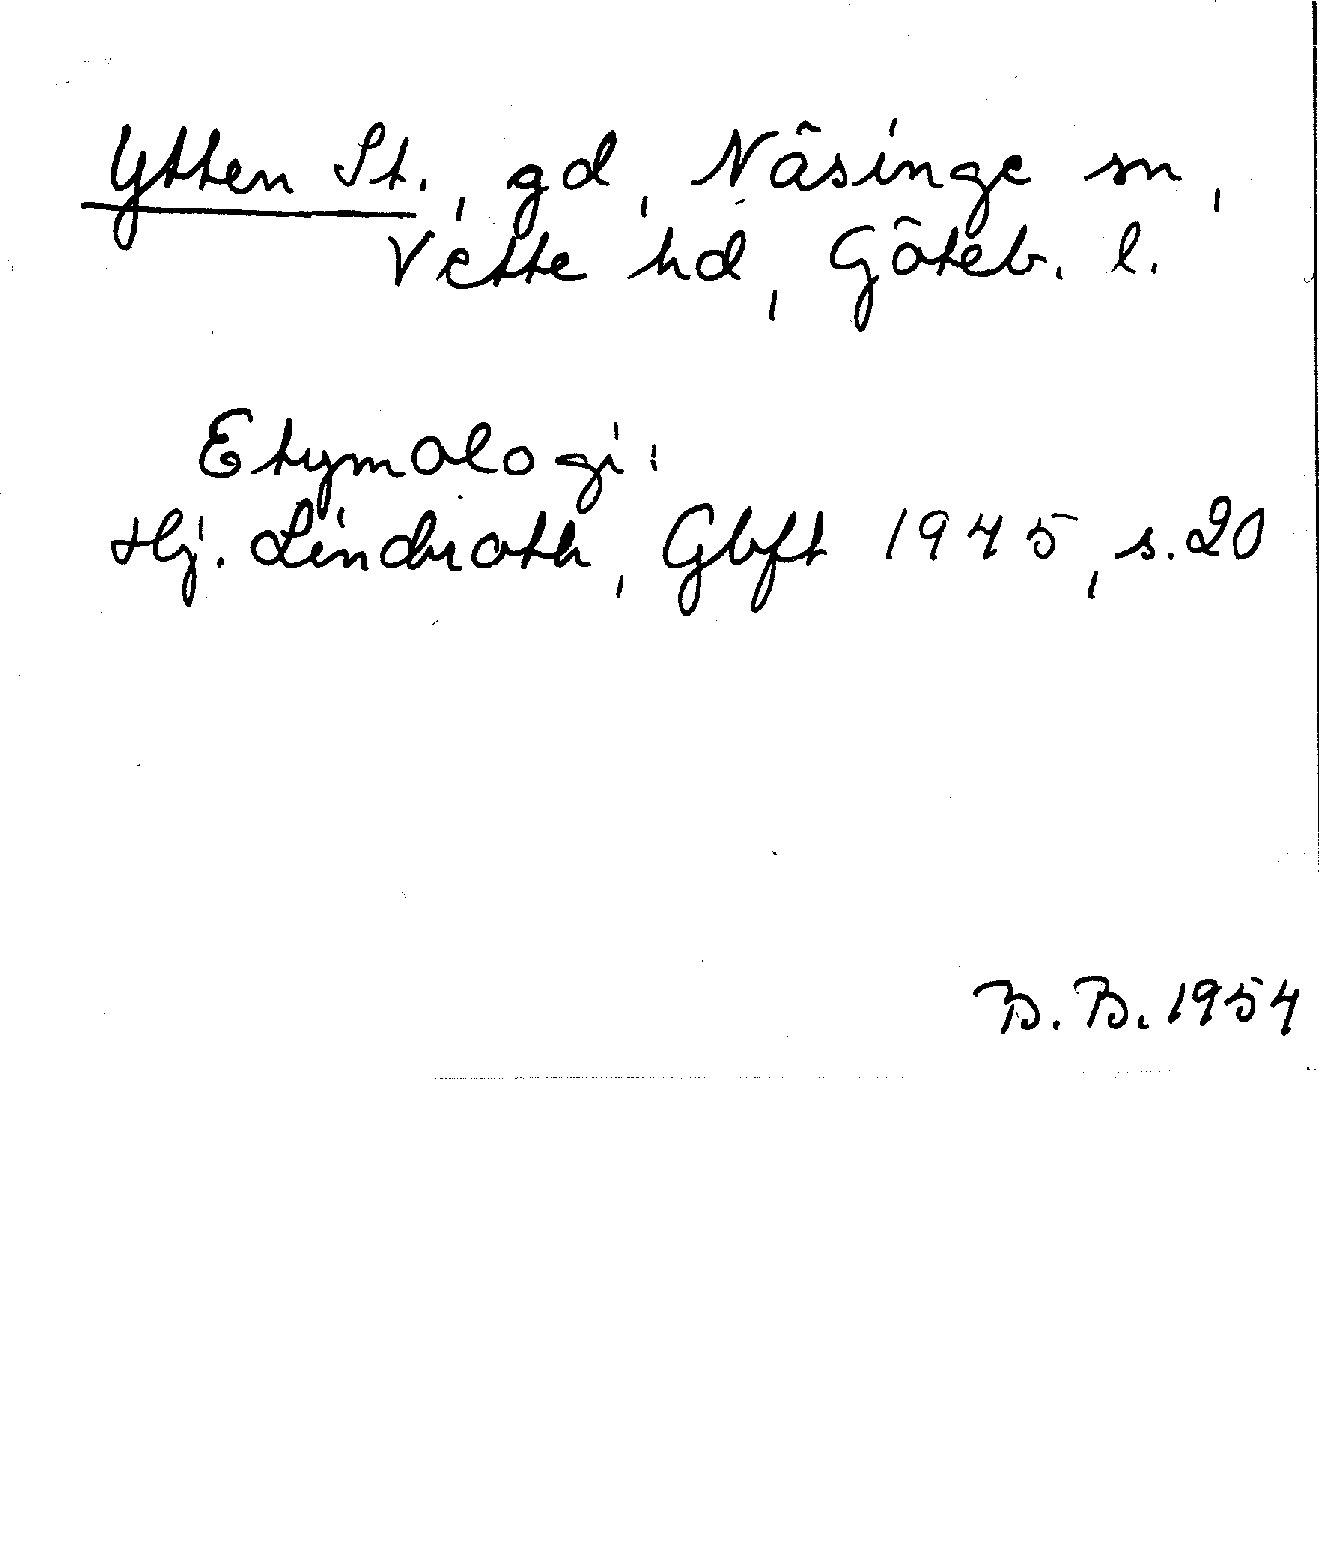 Ytten St., gd, Näsinge sn,
Vette hd, Göteb. l.
Etymologi:
Hj. Lindroth, Gbft 1945, s. 20
B. B. 1954